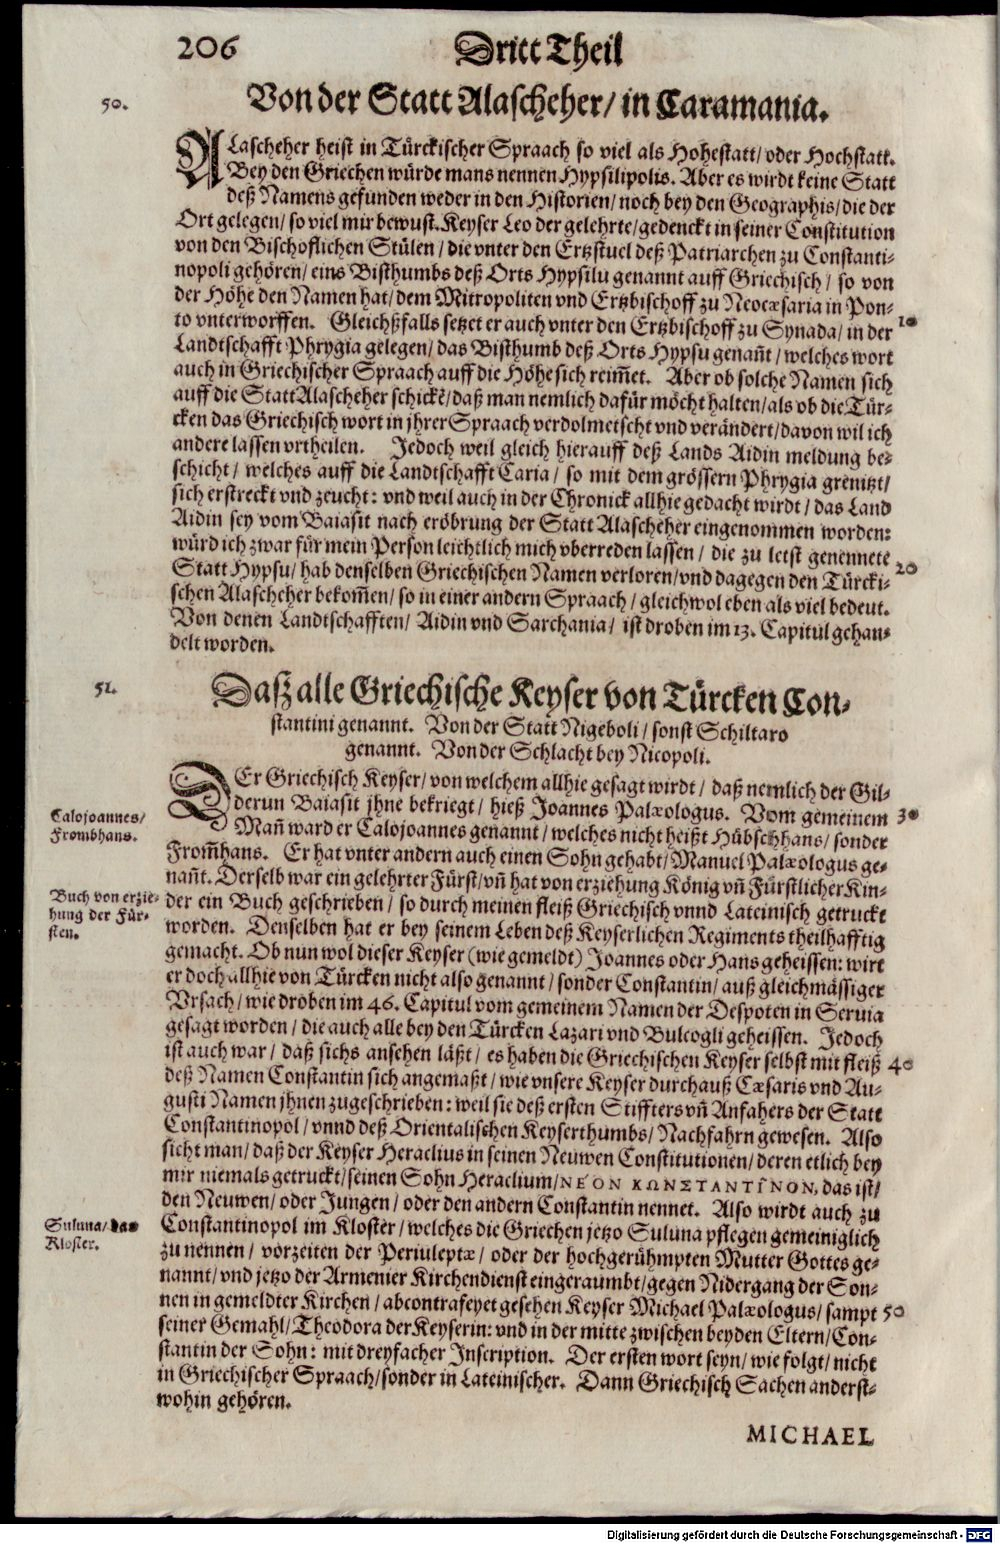 206 Dritt Theil
50. Von der Statt Alascheher/ in Caramania.
ALascheher heist in Türckischer Spraach so viel als Hohestatt/ oder Hochstatt.
Bey den Griechen würde mans nennen Hypsilipolis. Aber es wirdt keine Statt
deß Namens gefunden weder in den Historien/ noch bey den Geographis/ die der
Ort gelegen/ so viel mir bewust. Keyser Leo der gelehrte/ gedenckt in seiner Constitution
von den Bischoflichen Stülen/ die vnter den Ertzstuel deß Patriarchen zu Constanti-
nopoli gehören/ eins Bisthumbs deß Orts Hypsilu genannt auff Griechisch/ so von
der Höhe den Namen hat/ dem Mitropoliten vnd Ertzbischoff zu Neocæsaria in Pon-
to vnterworffen. Gleichßfalls setzet er auch vnter den Ertzbischoff zu Synada/ in der 10
Landtschafft Phrygia gelegen/ das Bisthumb deß Orts Hypsu genañt/ welches wort
auch in Griechischer Spraach auff die Höhe sich reim̃et. Aber ob solche Namen sich
auff die Statt Alascheher schickē/ daß man nemlich dafür möcht halten/ als ob die Tür-
cken das Griechisch wort in jhrer Spraach verdolmetscht vnd verändert/ davon wil ich
andere lassen vrtheilen. Jedoch weil gleich hierauff deß Lands Aidin meldung be-
schicht/ welches auff die Landtschafft Caria/ so mit dem grössern Phrygia grenitzt/
sich erstreckt vnd zeucht: vnd weil auch in der Chronick allhie gedacht wirdt/ das Land
Aidin sey vom Baiasit nach eröbrung der Statt Alascheher eingenommen worden:
würd ich zwar für mein Person leichtlich mich vberreden lassen/ die zu letst genennete
Statt Hypsu/ hab denselben Griechischen Namen verloren/ vnd dagegen den Türcki- 20
schen Alascheher bekom̃en/ so in einer andern Spraach/ gleichwol eben als viel bedeut.
Von denen Landtschafften/ Aidin vnd Sarchania/ ist droben im 13. Capitul gehan-
delt worden.
51. Daß alle Griechische Keyser von Türcken Con-
stantini genannt. Von der Statt Nigeboli/ sonst Schiltaro
genannt. Von der Schlacht bey Nicopoli.
DEr Griechisch Keyser/ von welchem allhie gesagt wirdt/ daß nemlich der Gil-
derun Baiasit jhne bekriegt/ hieß Joannes Palæologus. Vom gemeinem 30
Calojoannes/
Frombhans.
Mañ ward er Calojoannes genannt/ welches nicht heißt Hübschhans/ sonder
From̃hans. Er hat vnter andern auch einen Sohn gehabt/ Manuel Palæologus ge-
nañt. Derselb war ein gelehrter Fürst/ vñ hat von erziehung König vñ Fürstlicher Kin-
Buch von erzie-
hung der Für-
sten.
der ein Buch geschrieben/ so durch meinen fleiß Griechisch vnnd Lateinisch getruckt
worden. Denselben hat er bey seinem Leben deß Keyserlichen Regiments theilhafftig
gemacht. Ob nun wol dieser Keyser (wie gemeldt) Joannes oder Hans geheissen: wirt
er doch allhie von Türcken nicht also genannt/ sonder Constantin/ auß gleichmässiger
Vrsach/ wie droben im 46. Capitul vom gemeinem Namen der Despoten in Seruia
gesagt worden/ die auch alle bey den Türcken Lazari vnd Bulcogli geheissen. Jedoch
ist auch war/ daß sichs ansehen läßt/ es haben die Griechischen Keyser selbst mit fleiß 40
deß Namen Constantin sich angemaßt/ wie vnsere Keyser durchauß Cæsaris vnd Au-
gusti Namen jhnen zugeschrieben: weil sie deß ersten Stiffters vñ Anfahers der Statt
Constantinopol/ vnnd deß Orientalischen Keyserthumbs/ Nachfahrn gewesen. Also
sicht man/ daß der Keyser Heraclius in seinen Neuwen Constitutionen/ deren etlich bey
mir niemals getruckt/ seinen Sohn Heraclium/ ΝΕΌΝ ΚΩΝΣΤΑΝΤῖΝΟΝ, das ist/
den Neuwen/ oder Jungen/ oder den andern Constantin nennet. Also wirdt auch zu
Suluna/ das
Kloster.
Constantinopol im Kloster/ welches die Griechen jetzo Suluna pflegen gemeiniglich
zu nennen/ vorzeiten der Periuleptæ/ oder der hochgerühmpten Mutter Gottes ge-
nannt/ vnd jetzo der Armenier Kirchendienst eingeraumbt/ gegen Nidergang der Son-
nen in gemeldter Kirchen/ abcontrafeyet gesehen Keyser Michael Palæologus/ sampt 50
seiner Gemahl/ Theodora der Keyserin: vnd in der mitte zwischen beyden Eltern/ Con-
stantin der Sohn: mit dreyfacher Inscription. Der ersten wort seyn/ wie folgt/ nicht
in Griechischer Spraach/ sonder in Lateinischer. Dann Griechisch Sachen anderst-
wohin gehören.
MICHAEL
Digitalisierung gefördert durch die Deutsche Forschungsgemeinschaft - DFG